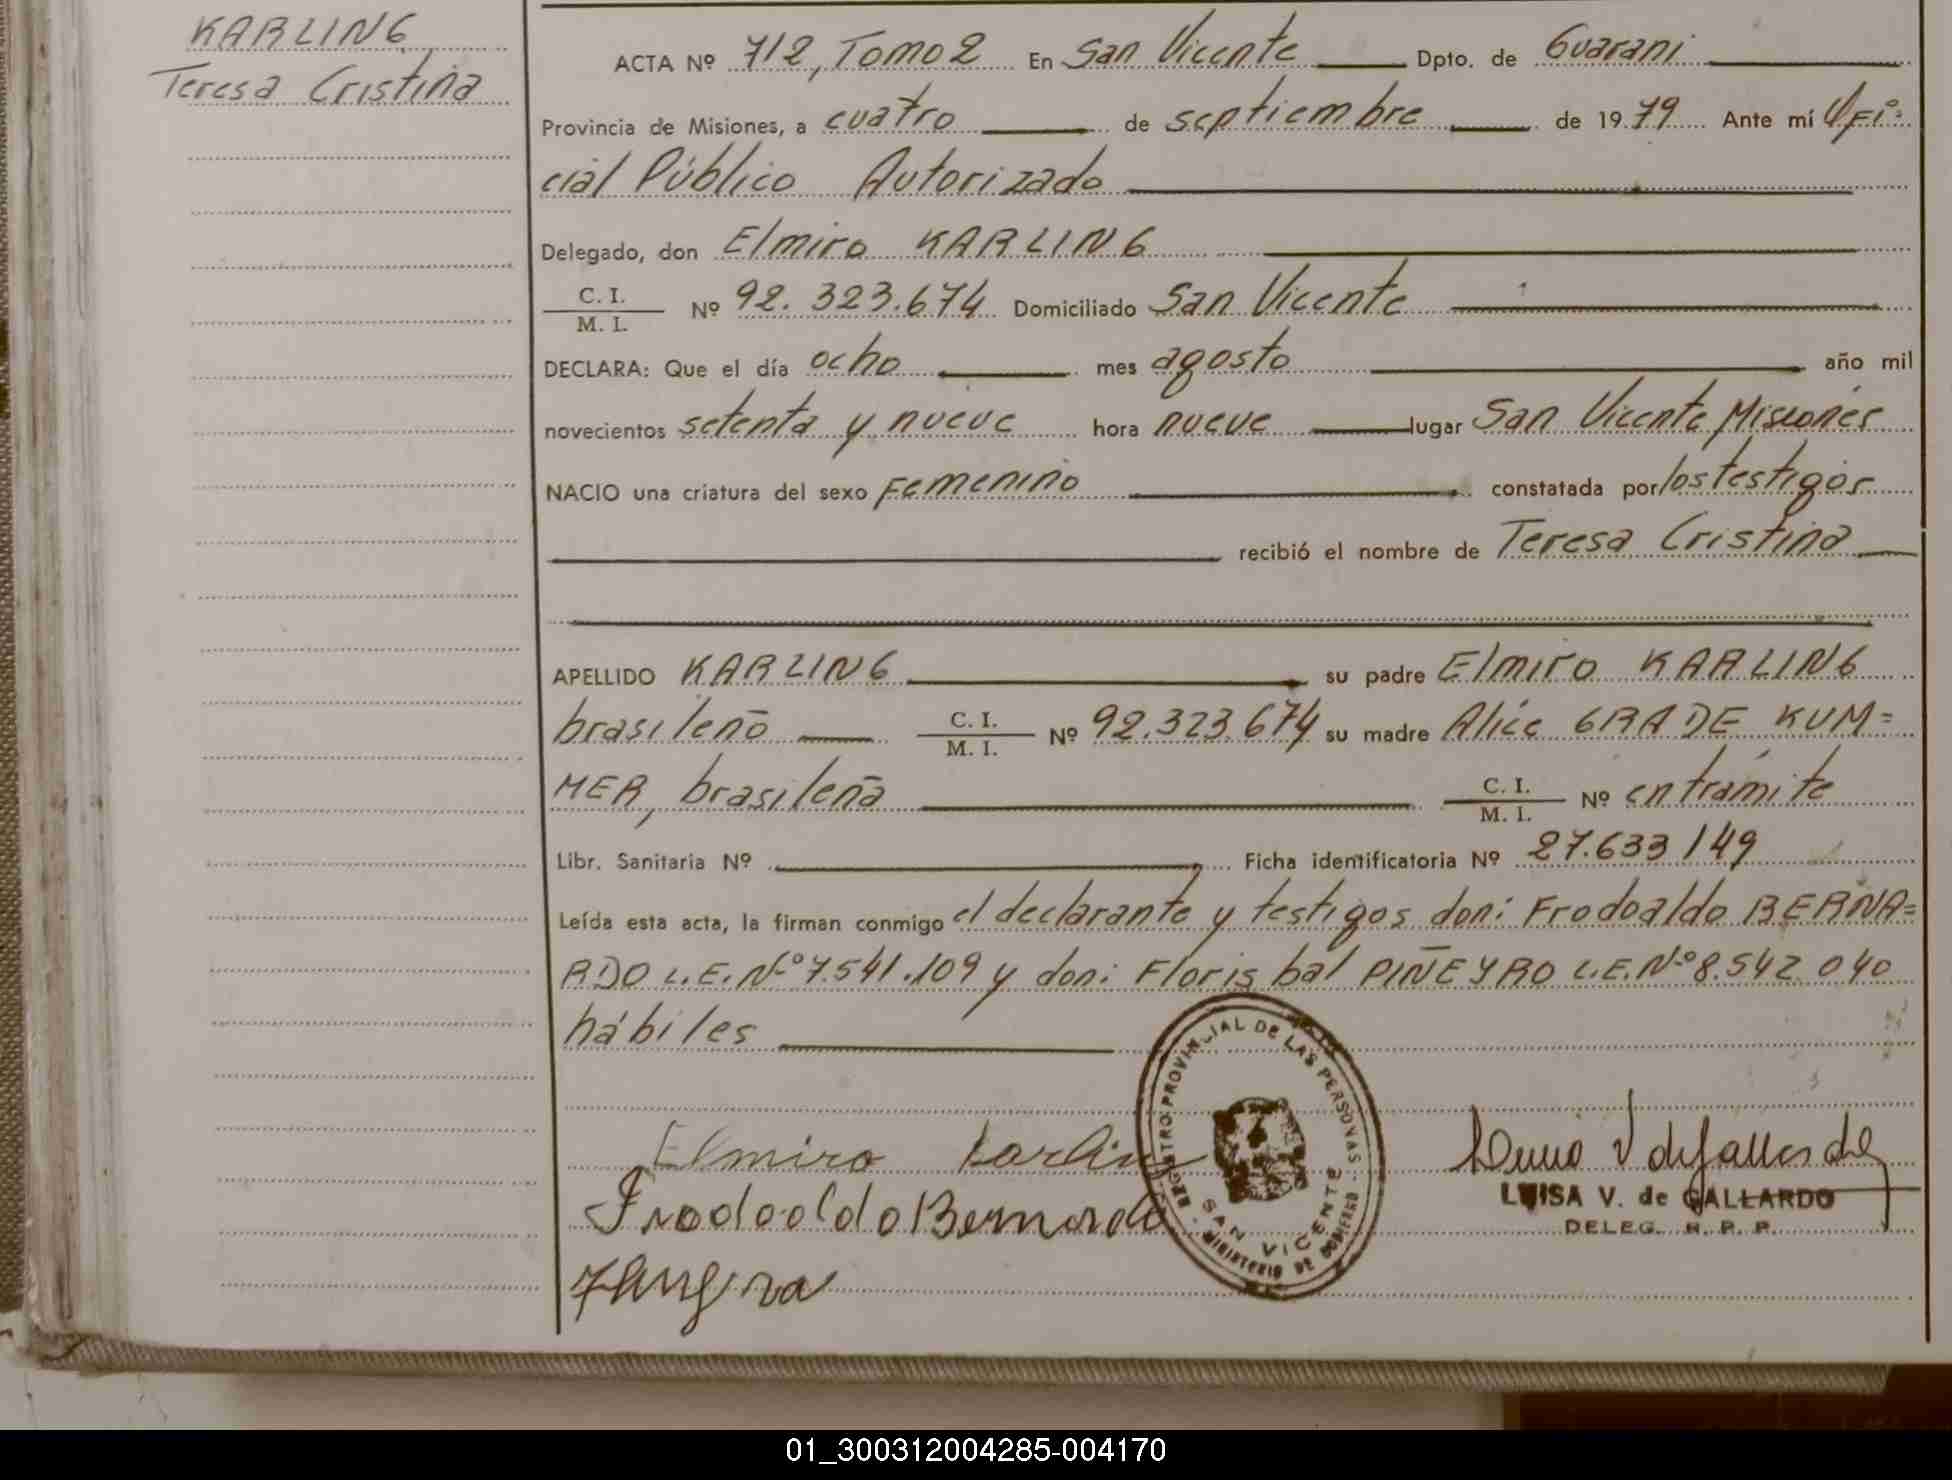 KARLING
Teresa Cristina
ACTA Nº 712, Tomo 2 En San Vicente Dpto. de Guarani
Provincia de Misiones, a cuatro de septiembre de 1979 Ante mí Ofi=
cial Público Autorizado
Delegado, don Elmiro KARLING
C. I.
M. I. Nº 92.323.674 Domiciliado San Vicente
DECLARA: Que el día ocho mes agosto año mil
novecientos setenta y nueve hora nueve lugar San Vicente Misiones
NACIO una criatura del sexo Femenino constatada por los testigos
recibió el nombre de Teresa Cristina
APELLIDO KARLING su padre Elmiro KARLING
brasileño C. I.
M. I. Nº 92.323.674 su madre Alice GRADE KUM=
MER, brasileña C. I.
M. I. Nº en trámite
Libr. Sanitaria Nº Ficha identificatoria Nº 27.633.149
Leída esta acta, la firman conmigo el declarante y testigos don: Frodoaldo BERNA=
RDO L.E.Nº 7.541.109 y don: Florisbal PIÑEYRO L.E.Nº 8.542.040
hábiles
Elmiro Karling
Frodoaldo Bernardo
REGISTRO PROVINCIAL DE LAS PERSONAS
SAN VICENTE
MINISTERIO DE GOBIERNO
LUISA V. de GALLARDO
DELEG. R. P. P.
01_300312004285-004170